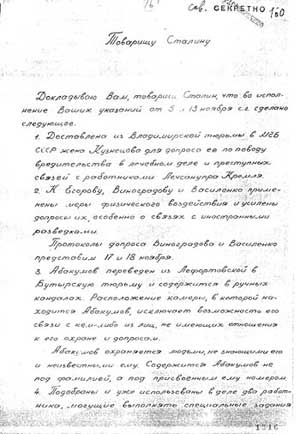 Сов. СЕКРЕТНО
Товарищу Сталину
Докладываю Вам, товарищ Сталин, что во испол-
нение Ваших указаний от 5 и 13 ноября с.г. сделано
следующее.
1. Доставлена из Владимирской тюрьмы в МГБ
СССР жена Кузнецова для допроса ее по поводу
вредительства в лечебном деле и преступных
связей с работниками Лечсанупра Кремля.
2. К Егорову, Виноградову и Василенко примене-
ны меры физического воздействия и усилены
допросы их, особенно о связях с иностранными
разведками.
Протоколы допроса Виноградова и Василенко
представим 17 и 18 ноября.
3. Абакумов переведен из Лефортовской в
Бутырскую тюрьму и содержится в ручных
кандалах. Расположение камеры, в которой на-
ходится Абакумов, исключает возможность его
связи с кем-либо из лиц, не имеющих отношения
к его охране и допросам.
Абакумов охраняется людьми, не знающими его
и неизвестными ему. Содержится Абакумов не
под фамилией, а под присвоенным ему номером.
4. Подобраны и уже использованы в деле два работ-
ника, могущие выполнять специальные задания